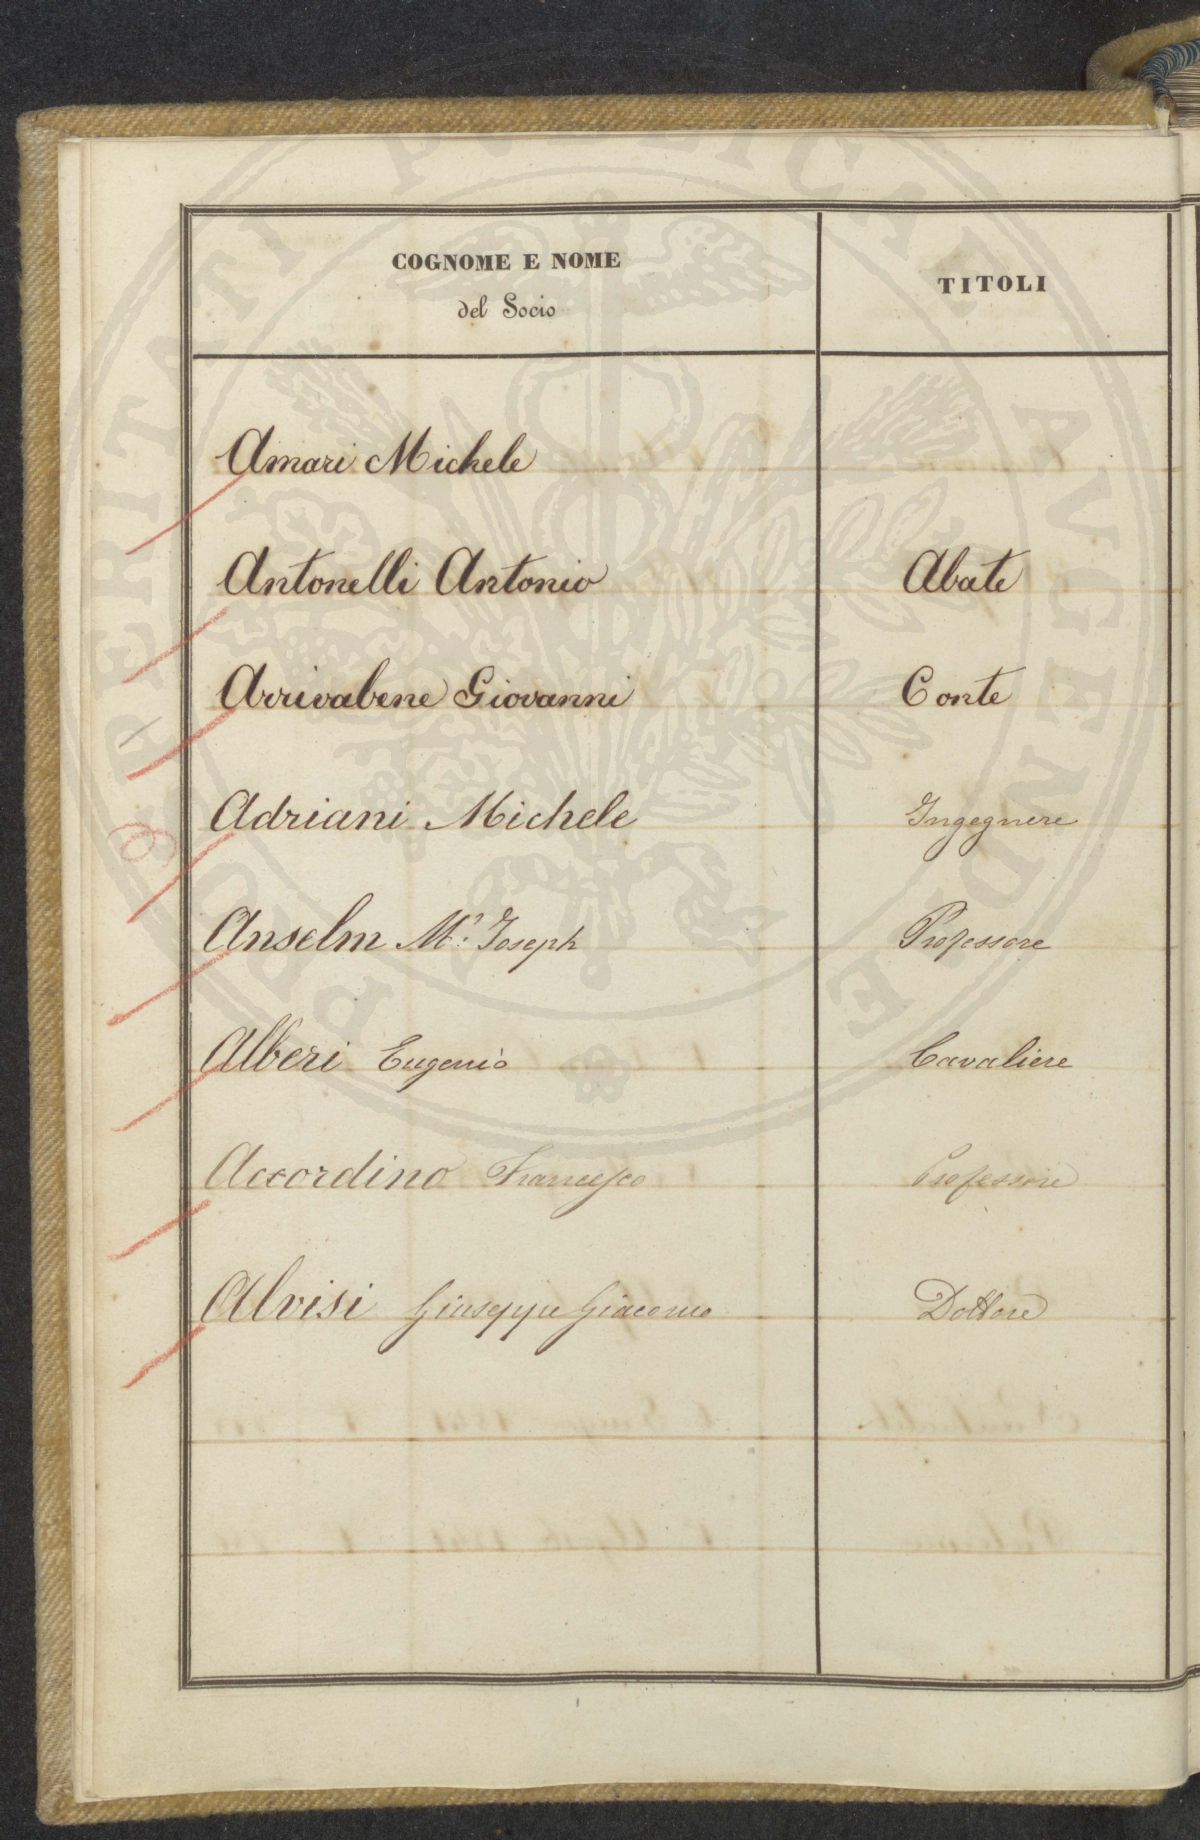 COGNOME E NOME
del Socio
TITOLI
Amari Michele
Antonelli Antonio Abate
Arrivabene Giovanni Conte
Adriani Michele Ingegnere
Anselm Mr. Joseph Professore
Alberi Eugenio Cavaliere
Accordino Francesco Professore
Alvisi Giuseppe Giacomo Dottore
PROSPERITATI PVBLICAE AVGENDAE